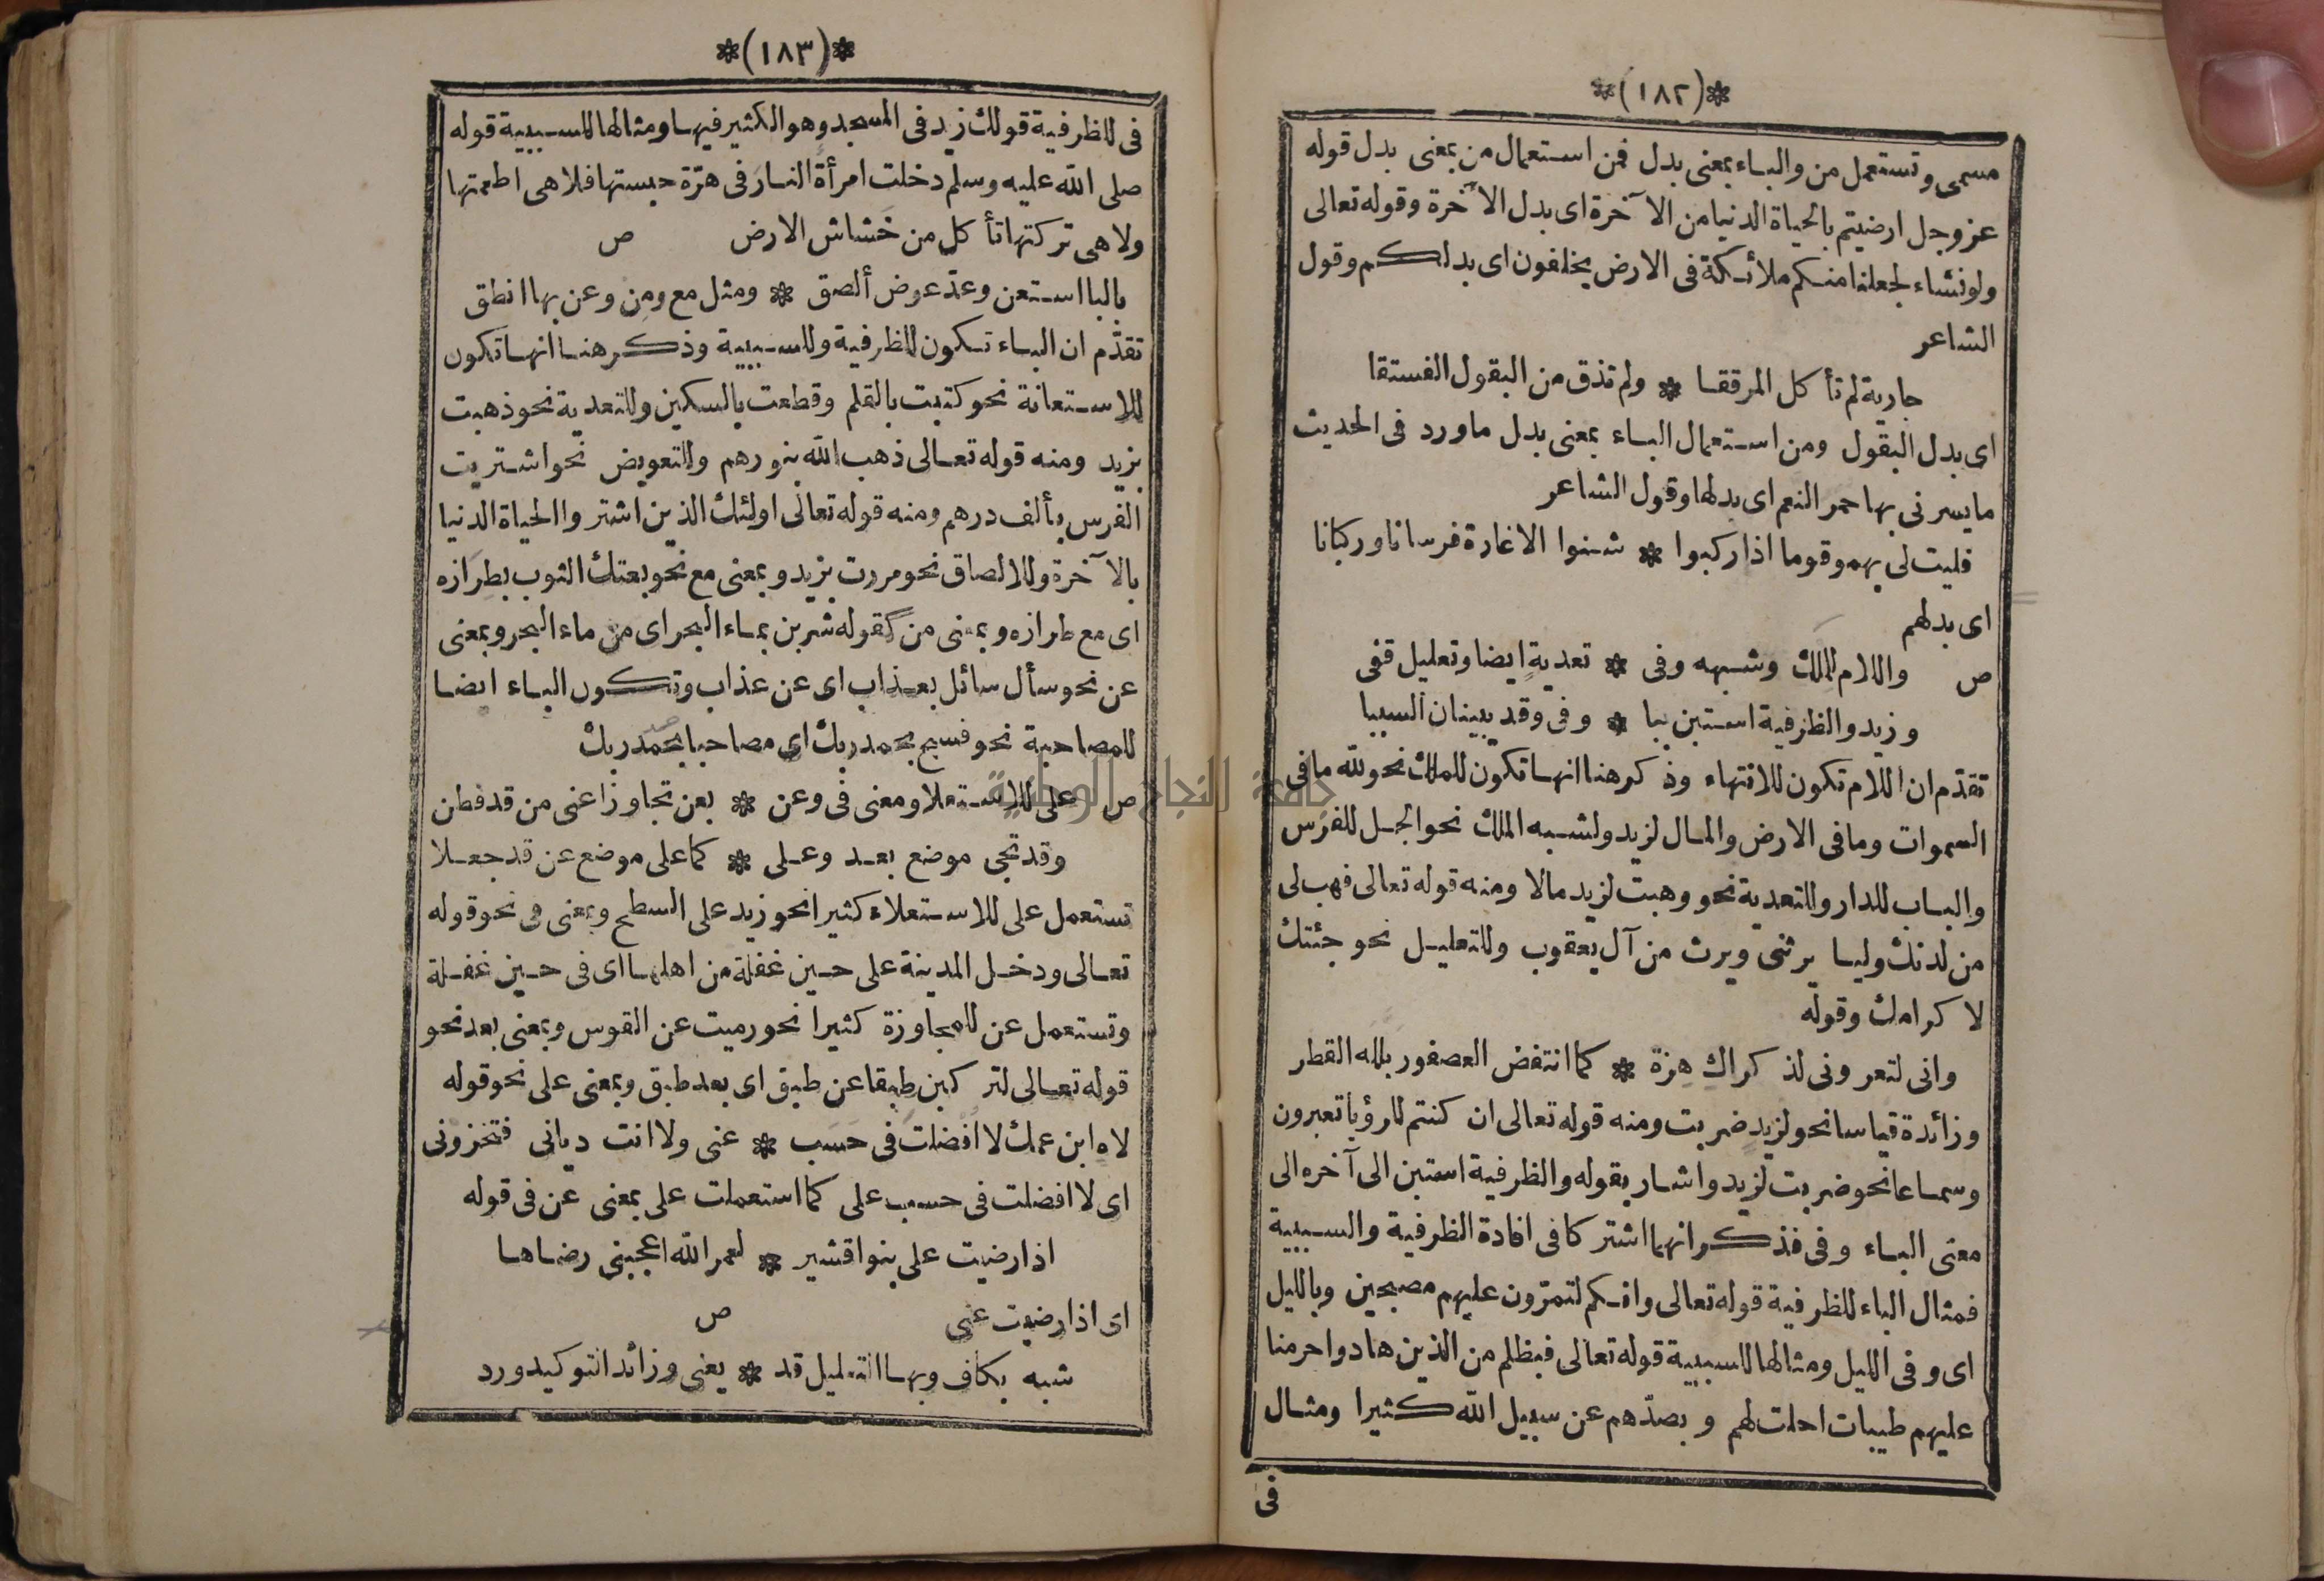 *(١٨٢)*
مسمى وتستعمل من والباء بمعنى بدل فمن استعمال من بمعنى بدل قوله
عز وجل ارضيتم بالحياة الدنيا من الآخرة اى بدل الآخرة وقوله تعالى
ولو نشاء لجعلنا منكم ملائكة فى الارض يخلفون اى بدلكم وقول
الشاعر
جارية لم تأكل المرققا * ولم تذق من البقول الفستقا
اى بدل البقول ومن استعمال الباء بمعنى بدل ماورد فى الحديث
مايسرنى بها حمر النعم اى بدلها وقول الشاعر
فليت لى بهم وقوما اذا ركبوا * شنوا الاغارة فرسانا وركبانا
اى بدلهم
ص واللام للملك وشبهه وفى * تعدية ايضا وتعليل قفى
وزيد والظرفية استبن ببا * وفى وقد يبينان السببا
تقدّم ان اللام تكون للانتهاء وذكر هنا انها تكون للملك نحو لله مافى
السموات ومافى الارض والمال لزيد ولشبه الملك نحو الجل للفرس
والباب للدار وللتعدية نحو وهبت لزيد مالا ومنه قوله تعالى فهب لى
من لدنك وليا يرثنى ويرث من آل يعقوب وللتعليل نحو جئتك
لاكرامك وقوله
وانى لتعرونى لذكراك هزة * كما انتفض العصفور بلله القطر
وزائدة قياسا نحو لزيد ضربت ومنه قوله تعالى ان كنتم للرؤيا تعبرون
وسماعا نحو ضربت لزيد واشار بقوله والظرفية استبن الى آخره الى
معنى الباء وفى فذكر انهما اشتركا فى افادة الظرفية والسببية
فمثال الباء للظرفية قوله تعالى وانكم لتمرّون عليهم مصبحين وبالليل
اى وفى الليل ومثالها للسببية قوله تعالى فبظلم من الذين هادوا حرمنا
عليهم طيبات احلت لهم وبصدّهم عن سبيل الله كثيرا ومثال
فى
*(١٨٣)*
فى للظرفية قولك زيد فى المسجد وهو الكثير فيها ومثالها للسببية قوله
صلى الله عليه وسلم دخلت امرأة النار فى هرّة حبستها فلا هى اطعمتها
ولا هى تركتها تأكل من خشاش الارض ص
بالبا استعن وعدّ عوض ألصق * ومثل مع ومن وعن بها انطق
تقدّم ان الباء تكون للظرفية وللسببية وذكر هنا انها تكون
للاستعانة نحو كتبت بالقلم وقطعت بالسكين وللتعدية نحو ذهبت
بزيد ومنه قوله تعالى ذهب الله بنورهم وللتعويض نحو اشتريت
الفرس بألف درهم ومنه قوله تعالى اولئك الذين اشتروا الحياة الدنيا
بالآخرة وللالصاق نحو مررت بزيد وبمعنى مع نحو بعتك الثوب بطرازه
اى مع طرازه وبمعنى من كقوله شربن بماء البحر اى من ماء البحر وبمعنى
عن نحو سأل سائل بعذاب اى عن عذاب وتكون الباء ايضا
للمصاحبة نحو فسبح بحمد ربك اى مصاحبا بحمد ربك
ص على للاستعلا ومعنى فى وعن * بعن تجاوزا عنى من قد فطن
وقد تجى موضع بعد وعلى * كما على موضع عن قد جعلا
تستعمل على للاستعلاء كثيرا نحو زيد على السطح وبمعنى فى نحو قوله
تعالى ودخل المدينة على حين غفلة من اهلها اى فى حين غفلة
وتستعمل عن للمجاوزة كثيرا نحو رميت عن القوس وبمعنى بعد نحو
قوله تعالى لتركبن طبقا عن طبق اى بعد طبق وبمعنى على نحو قوله
لاه ابن عمك لا افضلت فى حسب * عنى ولا انت ديانى فتخزونى
اى لا افضلت فى حسب على كما استعملت على بمعنى عن فى قوله
اذا رضيت على بنوا قشير * لعمر الله اعجبنى رضاها
اى اذا رضيت عنى ص
شبه بكاف وبها التعليل قد * يعنى وزائدا لتوكيد ورد
جامعة النجاح الوطنية